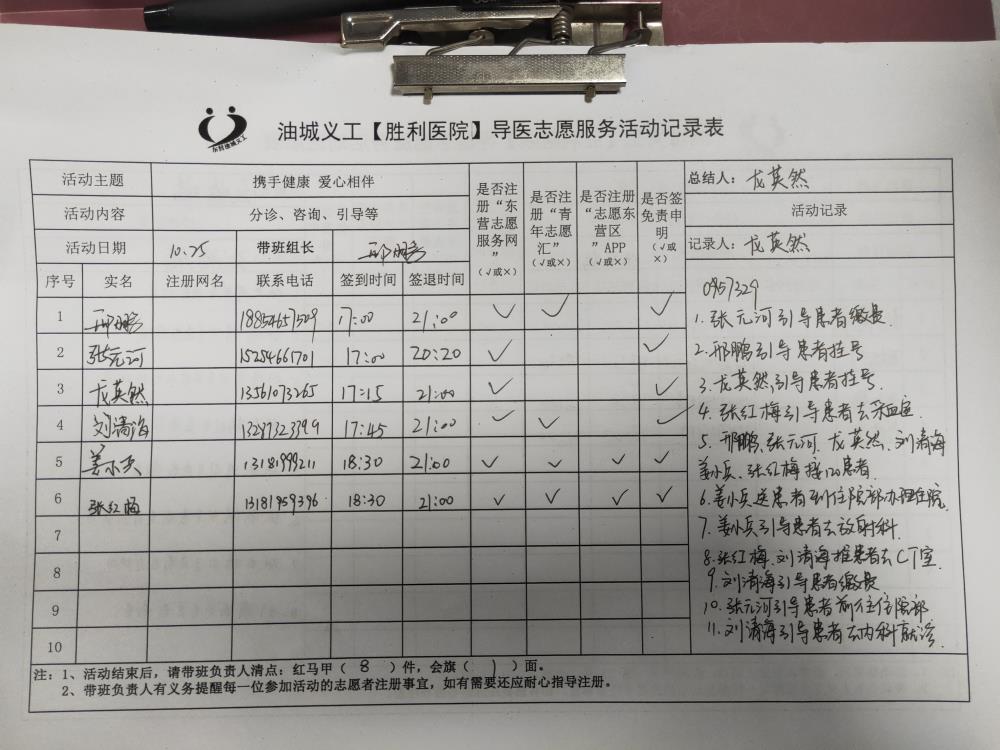 东营油城义工
油城义工【胜利医院】导医志愿服务活动记录表
活动主题 携手健康 爱心相伴
活动内容 分诊、咨询、引导等
活动日期 10.25 带班组长 邢鹏
是否注册“东营志愿服务网”(√或×)
是否注册“青年志愿汇”(√或×)
是否注册“志愿东营区”APP(√或×)
是否签免责申明(√或×)
序号 实名 注册网名 联系电话 签到时间 签退时间
1 邢鹏 18854657509 17:00 21:00 √ √ √
2 张元河 15254661701 17:00 20:20 √ √
3 龙英然 13561073265 17:15 21:00 √ √
4 刘清海 13287323799 17:45 21:00 √ √ √
5 姜小兵 13181999211 18:30 21:00 √ √ √ √
6 张红梅 13181959396 18:30 21:00 √ √ √ √
7
8
9
10
总结人：龙英然
活动记录
记录人：龙英然
0957329
1.张元河引导患者缴费.
2.邢鹏引导患者挂号
3.龙英然引导患者挂号.
4.张红梅引导患者去采血室.
5.邢鹏、张元河、龙英然、刘清海
姜小兵、张红梅接120患者.
6.姜小兵送患者到住院部办理住院.
7.姜小兵引导患者去放射科.
8.张红梅、刘清海推患者去CT室.
9.刘清海引导患者缴费
10.张元河引导患者前往住院部
11.刘清海引导患者去内科就诊.
注：1、活动结束后，请带班负责人清点：红马甲（ 8 ）件，会旗（ 1 ）面。
2、带班负责人有义务提醒每一位参加活动的志愿者注册事宜，如有需要还应耐心指导注册。